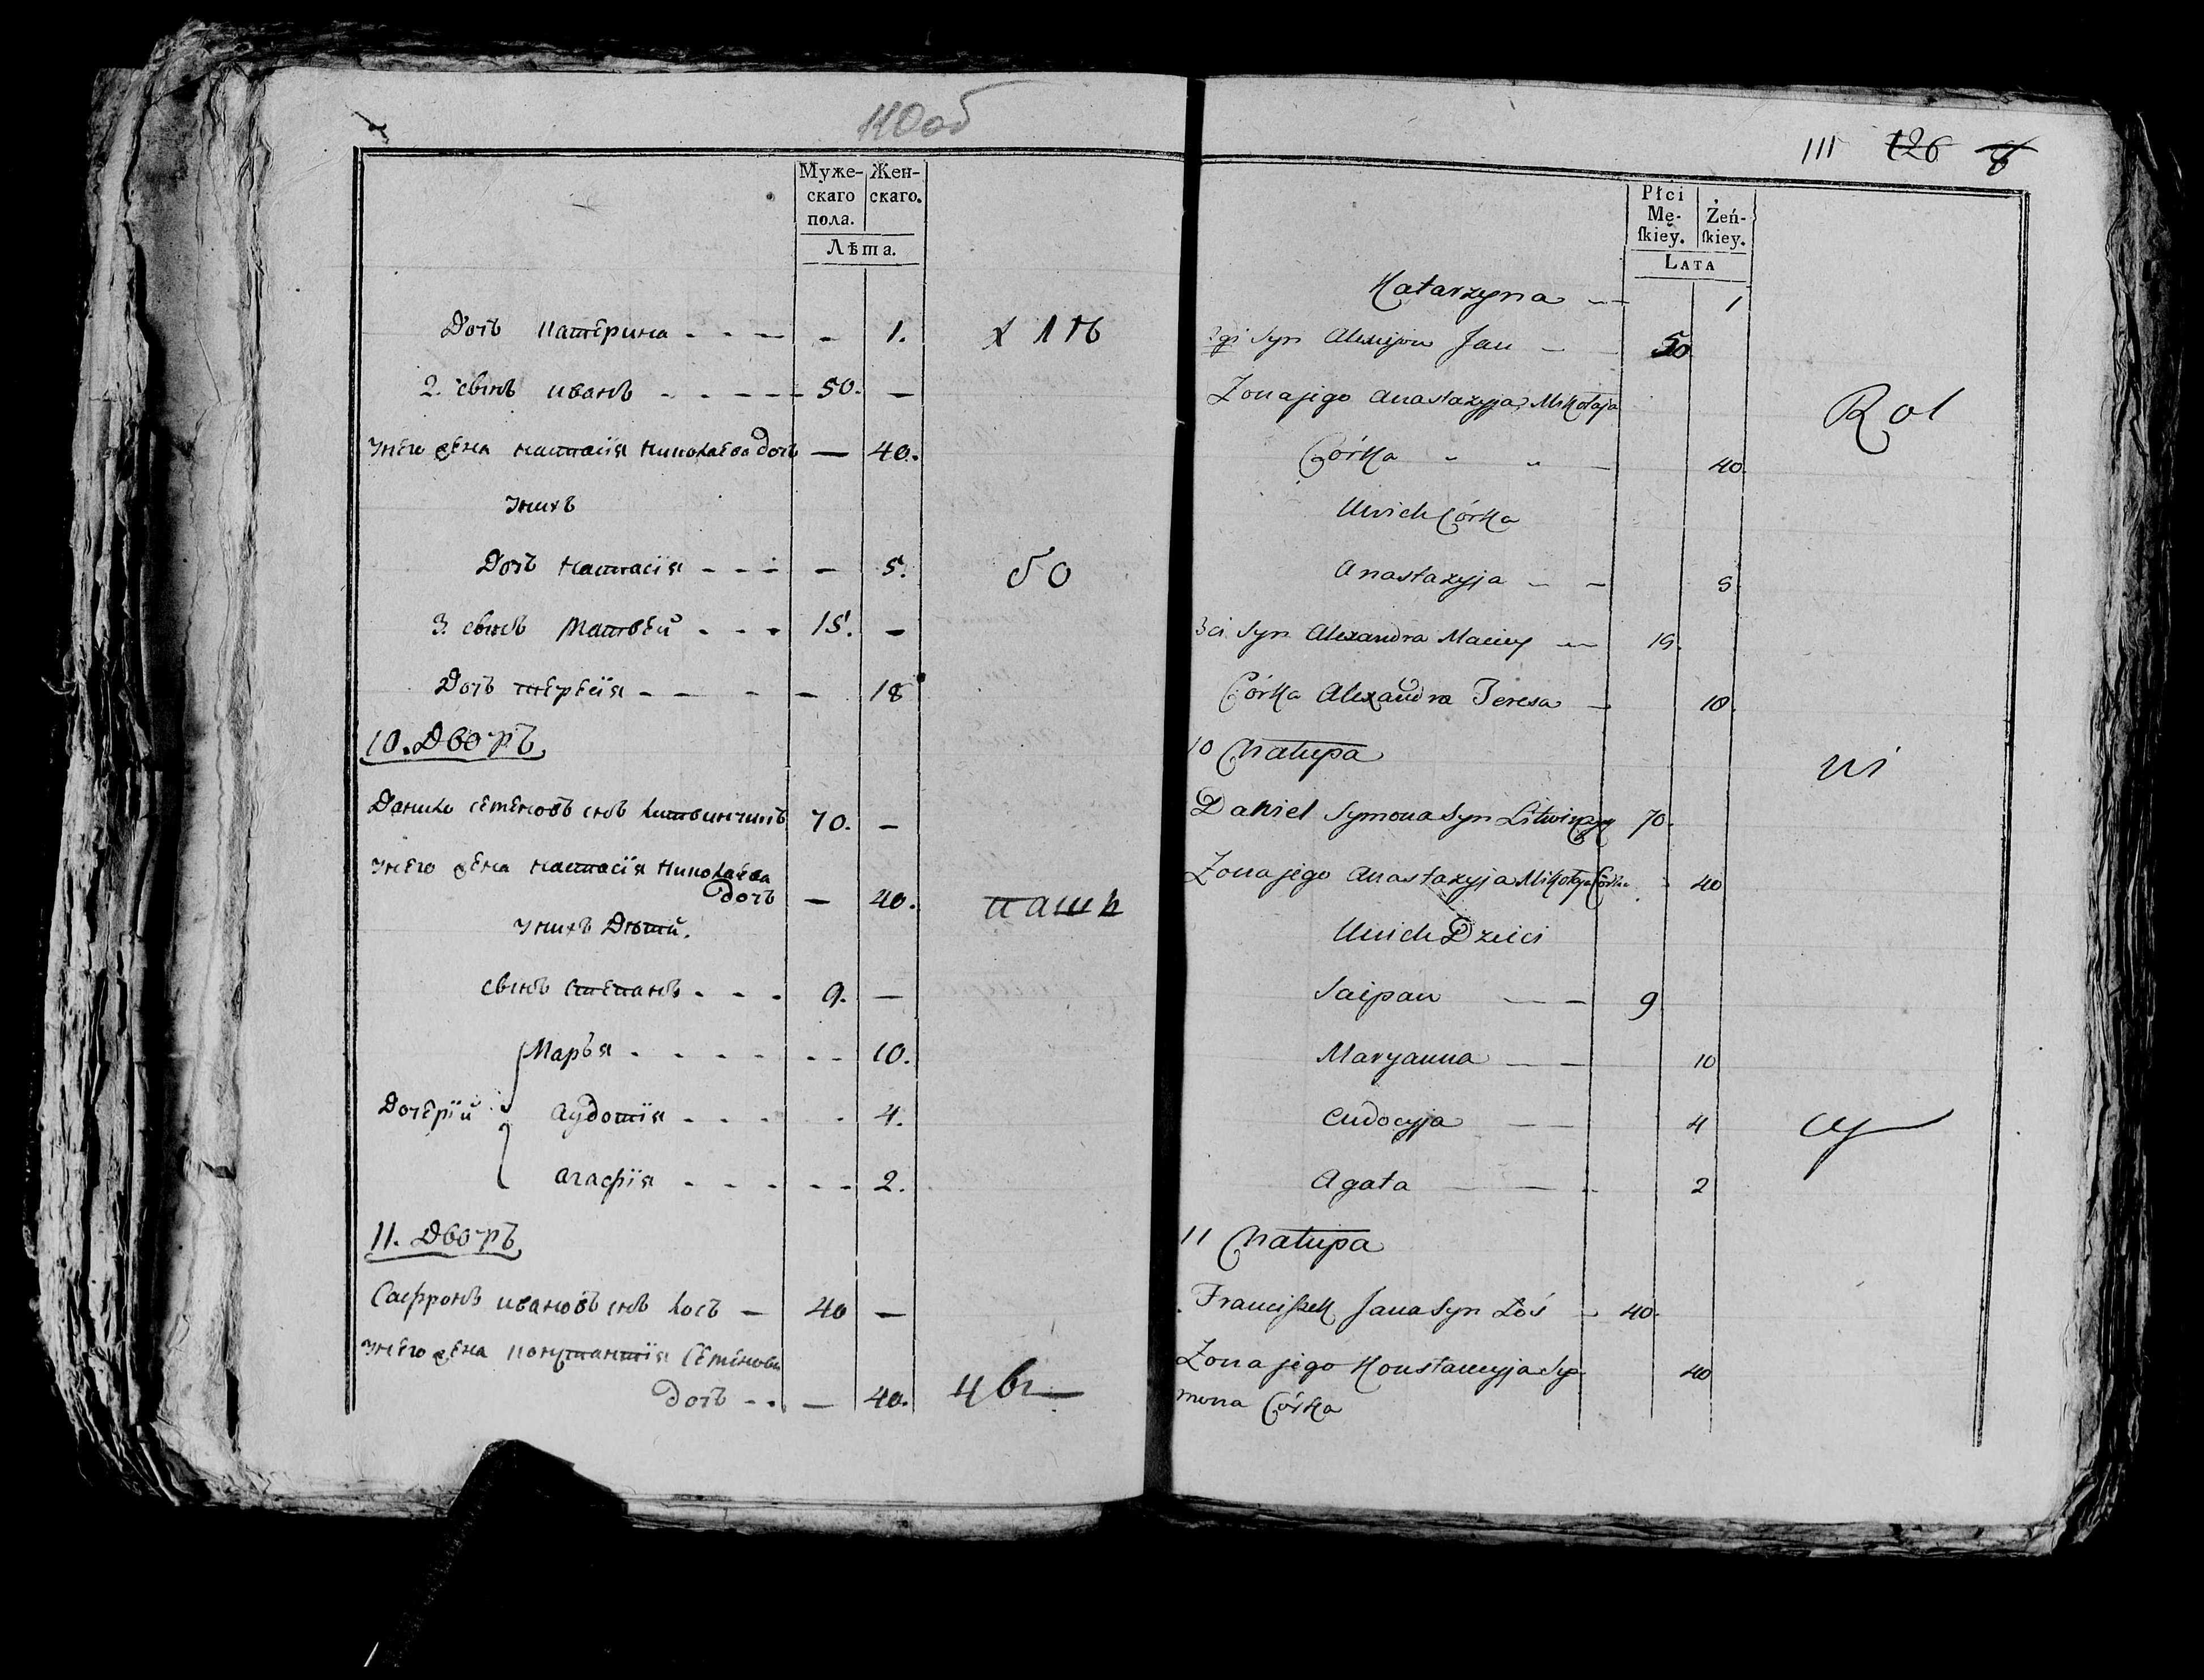 110об
Муже-
скаго
пола.
Жен-
скаго.
Лѣта.
Дочь Катерина - - - - 1. хлѣ
2. сынъ иванъ - - - - 50. -
унего жена настасія николаева дочь - 40.
унихъ
Дочь настасія - - - - 5. бо
3. сынъ матвѣй - - - 15. -
Дочь терѣсія - - - - 18
10. Дворъ
Данило семеновъ снъ литвинчикъ 70. -
унего жена настасія николаева
дочь - 40. паш
унихъ дѣтѣй.
сынъ степанъ - - - 9. -
Марья - - - - - - 10.
Дочерій
аудотія - - - - 4.
агафія - - - - - - 2.
11. Дворъ
Сафронъ ивановъ снъ лось - 40 -
унего жена константія семенова
дочь - - - 40.
111 126
Płci
Mę-
ſkiey.
Żeń-
ſkiey.
LATA
Katarzyna - - 1
2gi Syn Jan - - 50
Zona jego Anastazyja Mikołaja
Córka " " - 40 Rol
Unich Córka
Anastazyja - - 5
3ci Syn Alexandra Maciey - 15.
Córka Alexandra Teresa - 18.
10 Chałupa
ni
Daniel Symona Syn 70.
Zona jego Anastazyja Mikołaja Córka 40
Unich Dzieci
- - 9
Maryanna - - 10
Eudocyja - - 4 cy
Agata - - - 2
11 Chałupa
Franciſzek Jana Syn Łoś - 40.
Zona jego Konstancyja Sy- 40
mona Córka